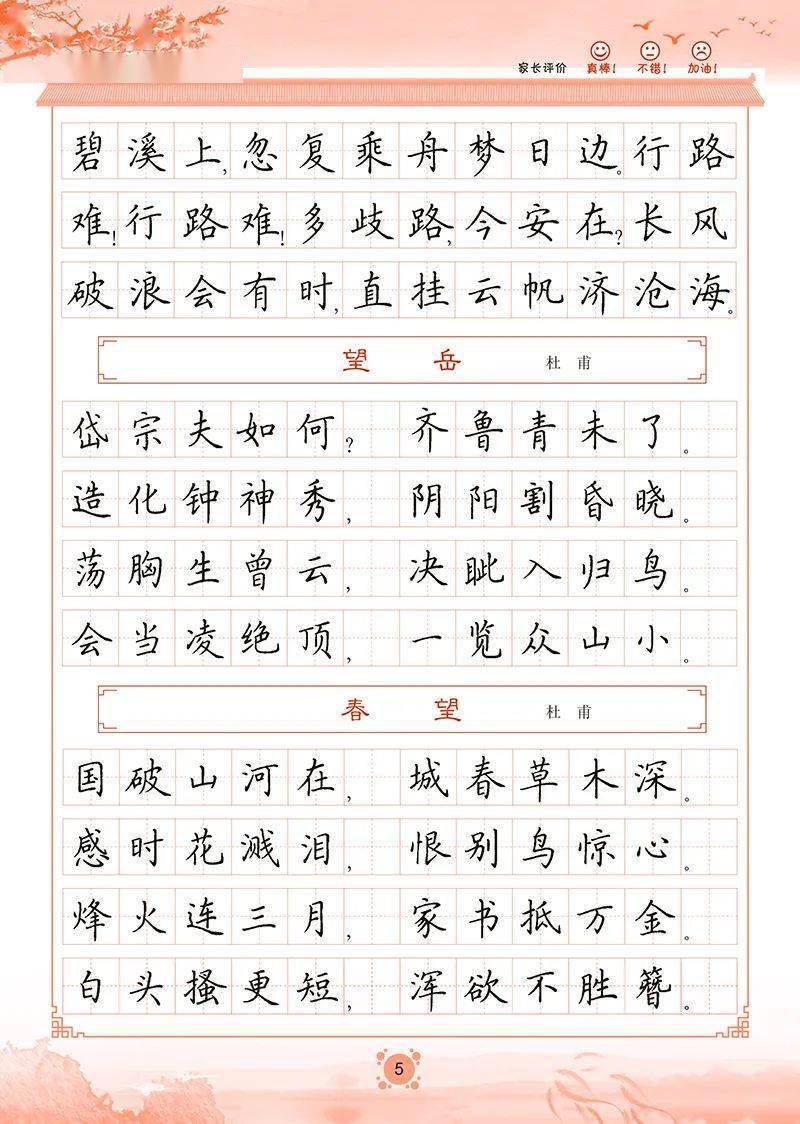 家长评价 真棒！ 不错！ 加油！
碧溪上，忽复乘舟梦日边。行路
难！行路难！多歧路，今安在？长风
破浪会有时，直挂云帆济沧海。
望岳 杜甫
岱宗夫如何？ 齐鲁青未了。
造化钟神秀， 阴阳割昏晓。
荡胸生曾云， 决眦入归鸟。
会当凌绝顶， 一览众山小。
春望 杜甫
国破山河在， 城春草木深。
感时花溅泪， 恨别鸟惊心。
烽火连三月， 家书抵万金。
白头搔更短， 浑欲不胜簪。
5